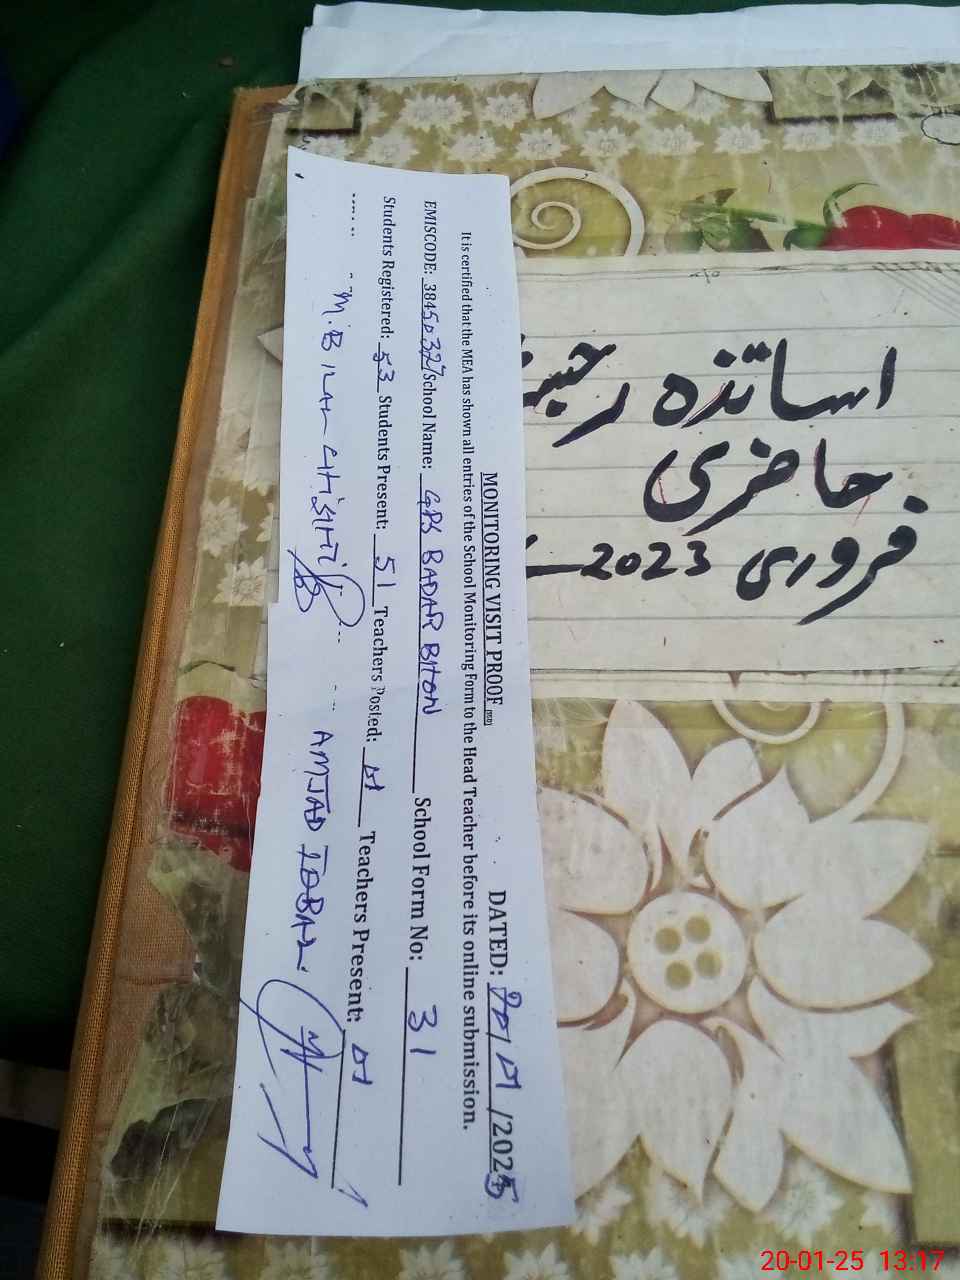 MONITORING VISIT PROOF (SED) DATED: 20/01/2025
It is certified that the MEA has shown all entries of the School Monitoring Form to the Head Teacher before its online submission.
EMISCODE: 38450327 School Name: GPS BADAR BHON School Form No: 31
Students Registered: 53 Students Present: 51 Teachers Posted: 01 Teachers Present: 01
M. BILAL CHISHTI AMJAD IQBAL
اساتذہ رجسٹر
حاضری
فروری 2023
20-01-25 13:17